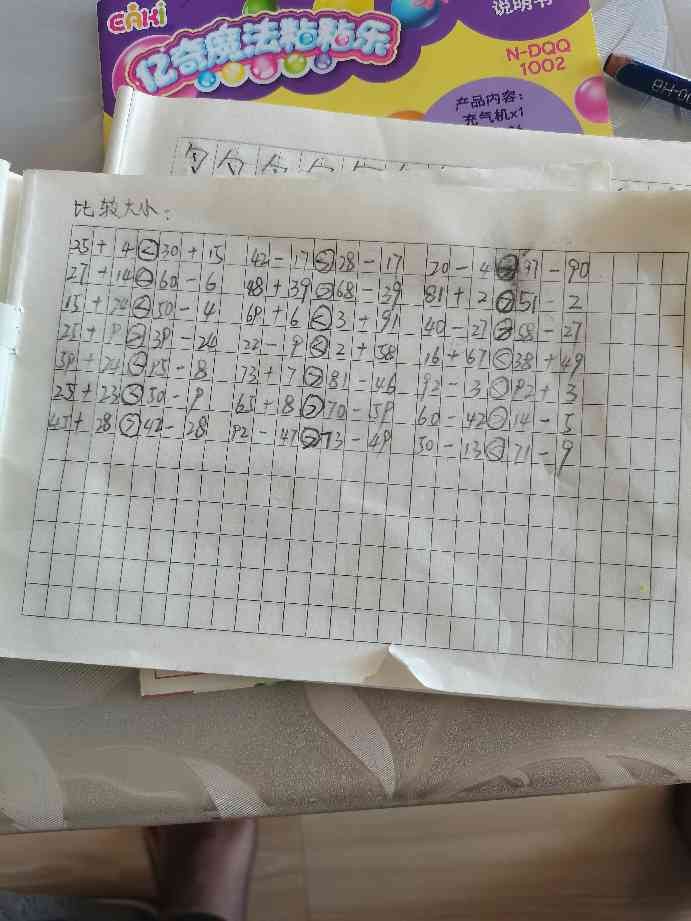 EAKi
亿奇魔法粘粘乐
说明书
N-DQQ
1002
产品内容:
充气机x1
HB
比较大小:
25+4<30+15 42-17>28-17 70-4>97-90
27+14<60-6 48+39>68-39 81+2>51-2
15+24<50-4 69+6<3+91 40-27 58-27
25+9>39-24 22-9<2+58 16+67<38+49
-8 73+7>81-46 92-3<82+3
25+23<50-9 65+8>70-59 60-42 14-5
45+28>42-28 92-47>73-49 50-13<71-9